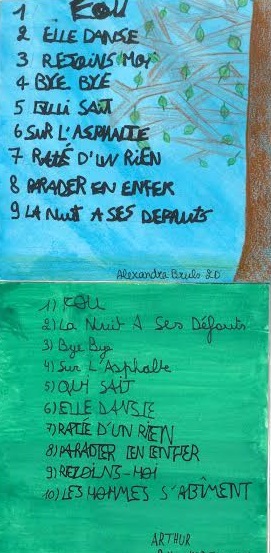 1 FOU
2 ELLE DANSE
3 REJOINS MOI
4 BYE BYE
5 QUI SAIT
6 SUR L'ASPHALTE
7 RATÉ D'UN RIEN
8 PARADER EN ENFER
9 LA NUIT A SES DEFAUTS
Alexandra Brulo 2D
1) FOU
2) La Nuit A Ses Défauts
3) Bye Bye
4) Sur L'Asphalte
5) QUI SAIT
6) ELLE DANSE
7) RATÉE D'UN RIEN
8) PARADER EN ENFER
9) REJOINS-MOI
10) LES HOMMES S'ABÎMENT
ARTHUR